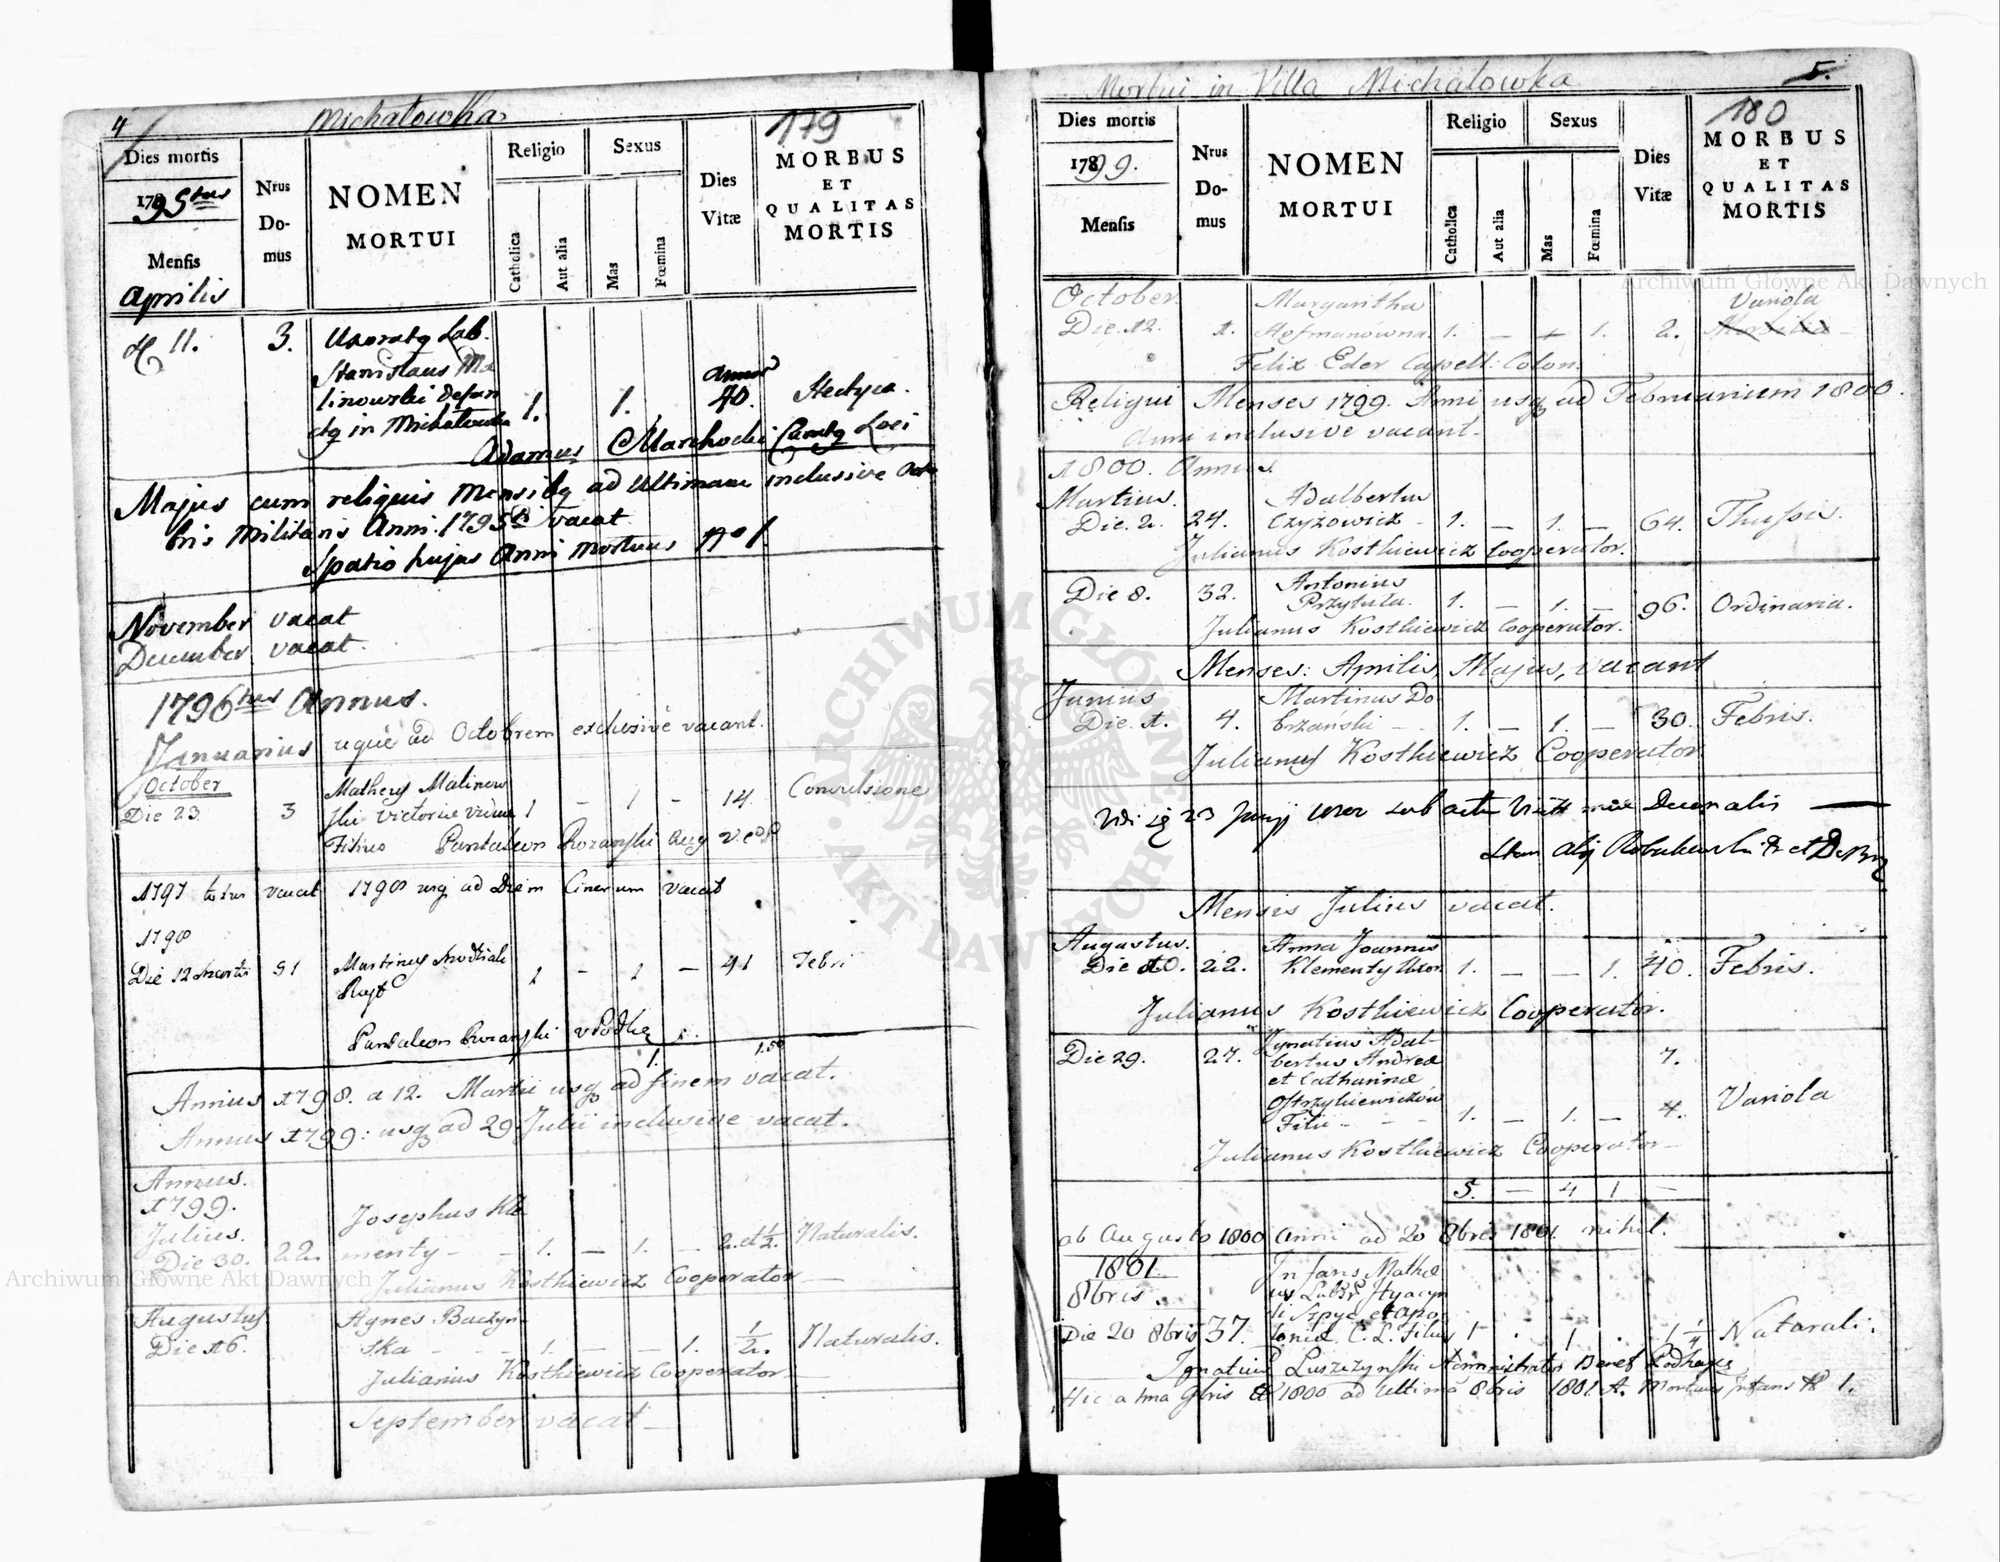 4
Michałowka
179
Dies mortis
1795tus
Mensis
Aprilis
Nrus Domus
NOMEN MORTUI
Religio
Catholica
Aut alia
Sexus
Mas
Fœmina
Dies Vitæ
MORBUS
ET
QUALITAS
MORTIS
11.
3.
Uxoratq Lab.
Stanislaus Ma
linowski defun
ctq in Michałowka
1.
1.
40.
Hectyca.
Adamus Marchocki Curatq Loci
Majus cum reliquis Mensibq ad Ultimam inclusive
bris Militaris Anni 1795ti vacat
Spatio hujus Anni mortuus No 1.
November vacat
December vacat.
1796tus Annus.
Januarius usque ad Octobrem exclusivè vacant.
October
Die 23
3
Matheus Malinow
ski Victoriæ viduæ
Filius
1 – 1 – 14
Convulsione
Pantaleon Rozanski
1797 totus vacat 1798 usq ad Diem Cinerum vacat
1798
Die 12 Martii
51
Martinus
1 – 1 – 41
Febri
Pantaleon Rozanski
1.
Annus 1798. a 12. Martii usq ad finem vacat.
Annus 1799: usq ad 29 Julii inclusive vacat.
Annus.
1799.
Julius.
Die 30.
22.
Josephus Kle
menty – – 1. – 1. – 2. et 1/2.
Naturalis.
Julianus Kostkiewicz Cooperator
Augustus
Die 16.
Agnes Baczyń
ska – – – 1. – – 1. 1/2.
Naturalis.
Julianus Kostkiewicz Cooperator
September vacat
Mortui in Villa Michałowka
5.
180
Dies mortis
1799.
Mensis
Nrus Domus
NOMEN MORTUI
Religio
Catholica
Aut alia
Sexus
Mas
Fœmina
Dies Vitæ
MORBUS
ET
QUALITAS
MORTIS
October
Die. 12.
1.
Margaritha
Hofmanowna. 1. – + 1. 2.
Variola
Felix Eder Capell: Colon.
Reliqui Menses 1799. Anni usq ad Februarium 1800.
Anni inclusive vacant.
1800. Annus.
Martius.
Die. 2.
24.
Adalbertus
Czyżowicz – 1. – 1. – 64.
Thussis.
Julianus Kostkiewicz Cooperator.
Die 8.
32.
Antonius
Przytuła. 1. – 1. – 96.
Ordinaria.
Julianus Kostkiewicz Cooperator.
Menses: Aprilis, Majus, vacant
Junius
Die. 1.
4.
Martinus Do
brzanski – 1. – 1. – 30.
Febris.
Julianus Kostkiewicz Cooperator
23 Junij sub actu Decanalis
Mensis Julius vacat.
Augustus.
Die 10.
22.
Anna Joannis
Klementy Uxor 1. – – 1. 40.
Febris.
Julianus Kostkiewicz Cooperator.
Die 29.
27.
Ignatius Adal-
bertus Andreæ
et Catharinæ
Ostrzykiewiczów
Filii – – – 1. – 1. – 4.
7.
Variola
Julianus Kostkiewicz Cooperator
5. – 4 1 –
ab Augusto 1800 Anni ad 20 8bris 1801. nihil.
1801.
8bris.
Die 20 8bris
37
Infans Mathæ
us
1 . 1 . 1 1/4
Naturali.
Ignatius Luszczynski Administrator
Hic a 1ma 9bris 1800 ad Ultimã 8bris 1801 A. Mortuus Infans No 1.
ARCHIWUM GŁÓWNE AKT DAWNYCH
Archiwum Główne Akt Dawnych
Archiwum Główne Akt Dawnych